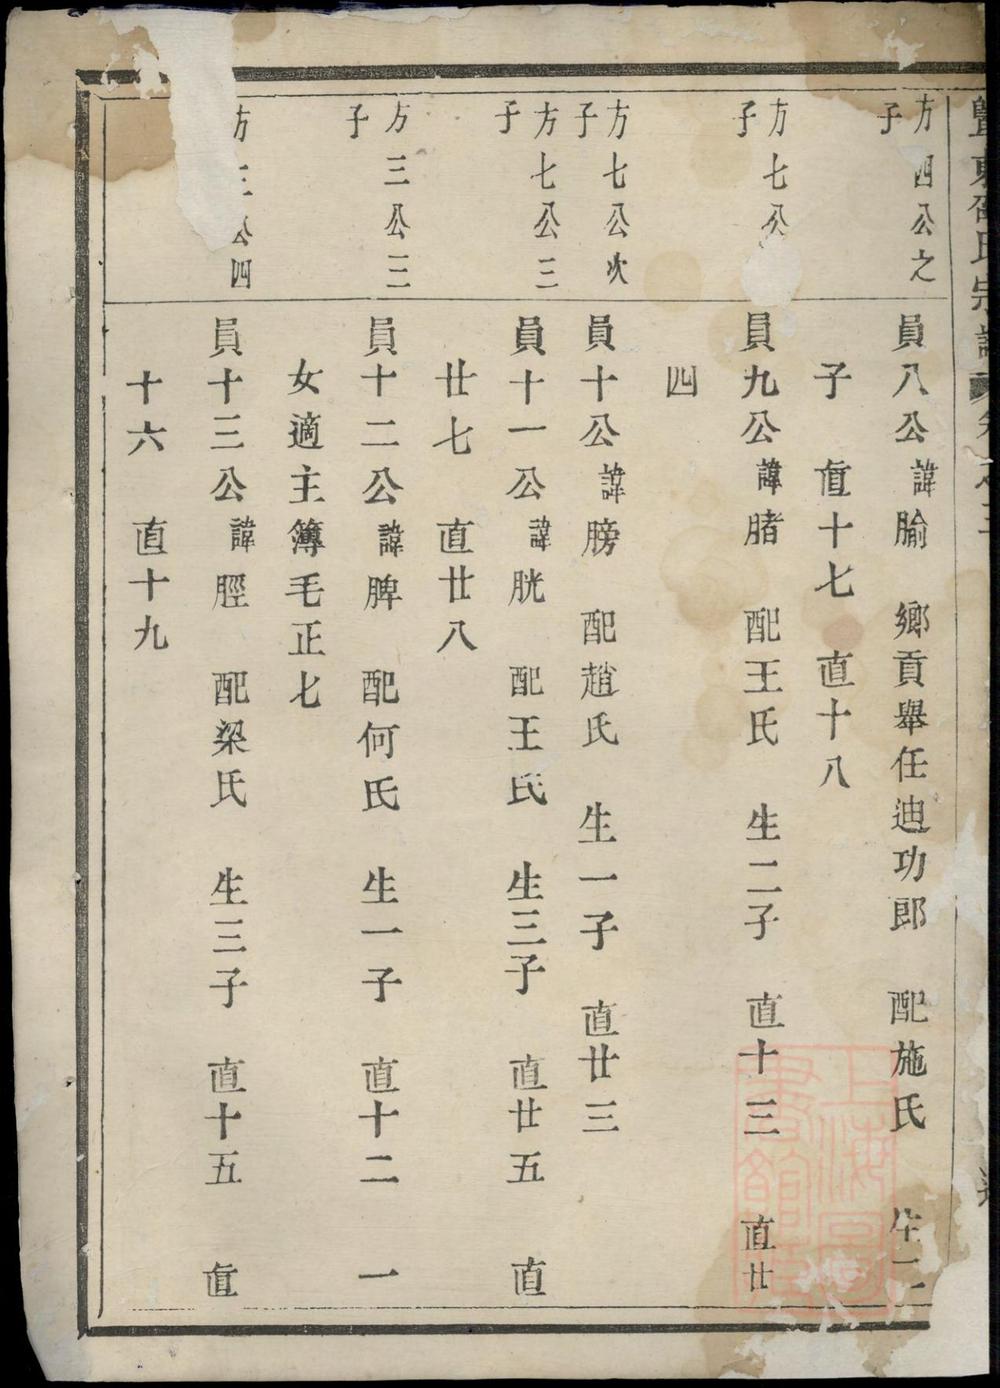 暨東邵氏宗譜 卷之三
方四公之
子
員八公諱腧 鄉貢舉任迪功郎 配施氏 生二
子 直十七 直十八
方七公
子
員九公諱䐗 配王氏 生二子 直十三 直廿
四
方七公次
子
員十公諱膀 配趙氏 生一子 直廿三
方七公三
子
員十一公諱胱 配王氏 生三子 直廿五 直
廿七 直廿八
方三公三
子
員十二公諱脾 配何氏 生一子 直十二 一
女適主簿毛正七
方三公四
員十三公諱脛 配梁氏 生三子 直十五 直
十六 直十九
上海圖書館藏